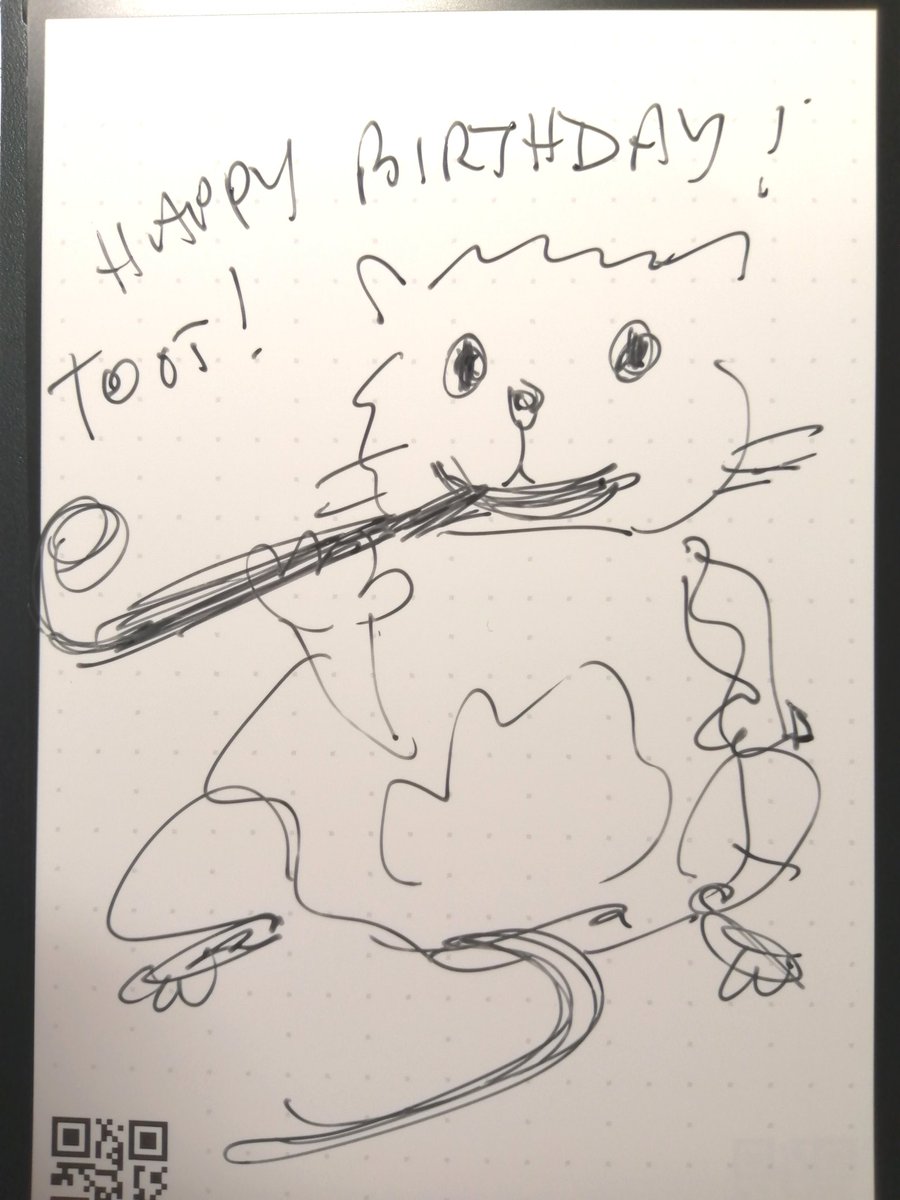 HAPPY BIRTHDAY!
TOOT!